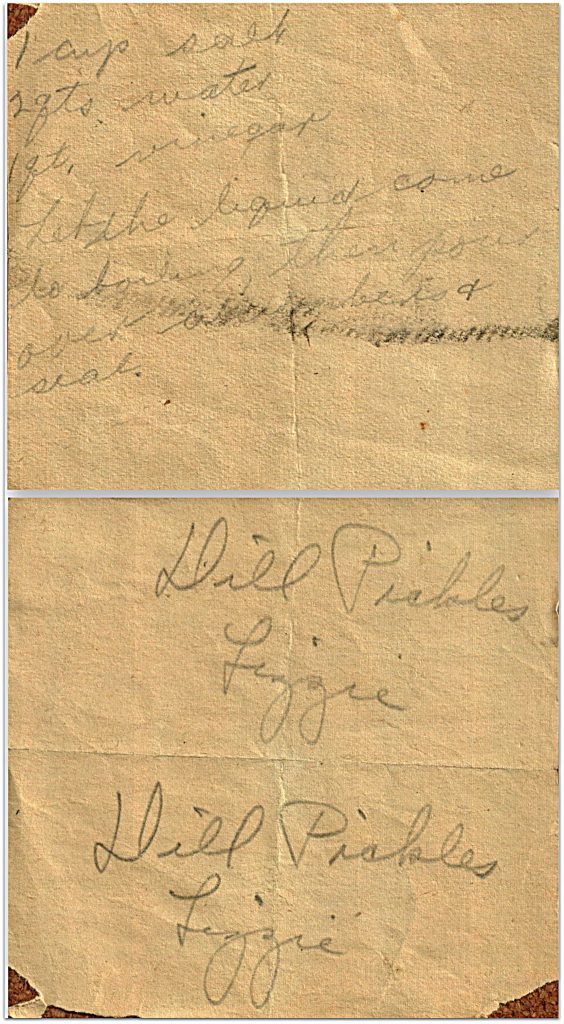 1 cup salt
2 qts water
1 qt. vinegar
Let the liquid come
to boiling, then pour
over cucumbers &
seal.
Dill Pickles
Lizzie
Dill Pickles
Lizzie